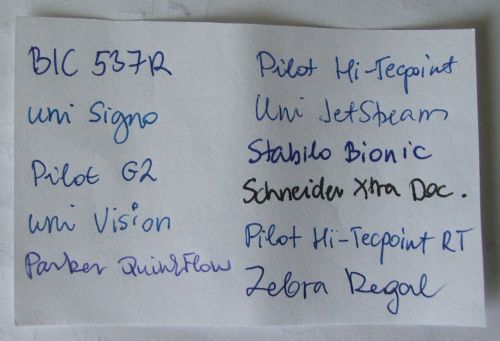 BIC 537R
uni Signo
Pilot G2
uni Vision
Parker QuinkFlow
Pilot Hi-Tecpoint
Uni JetStream
Stabilo Bionic
Schneider Xtra Doc.
Pilot Hi-Tecpoint RT
Zebra Regal